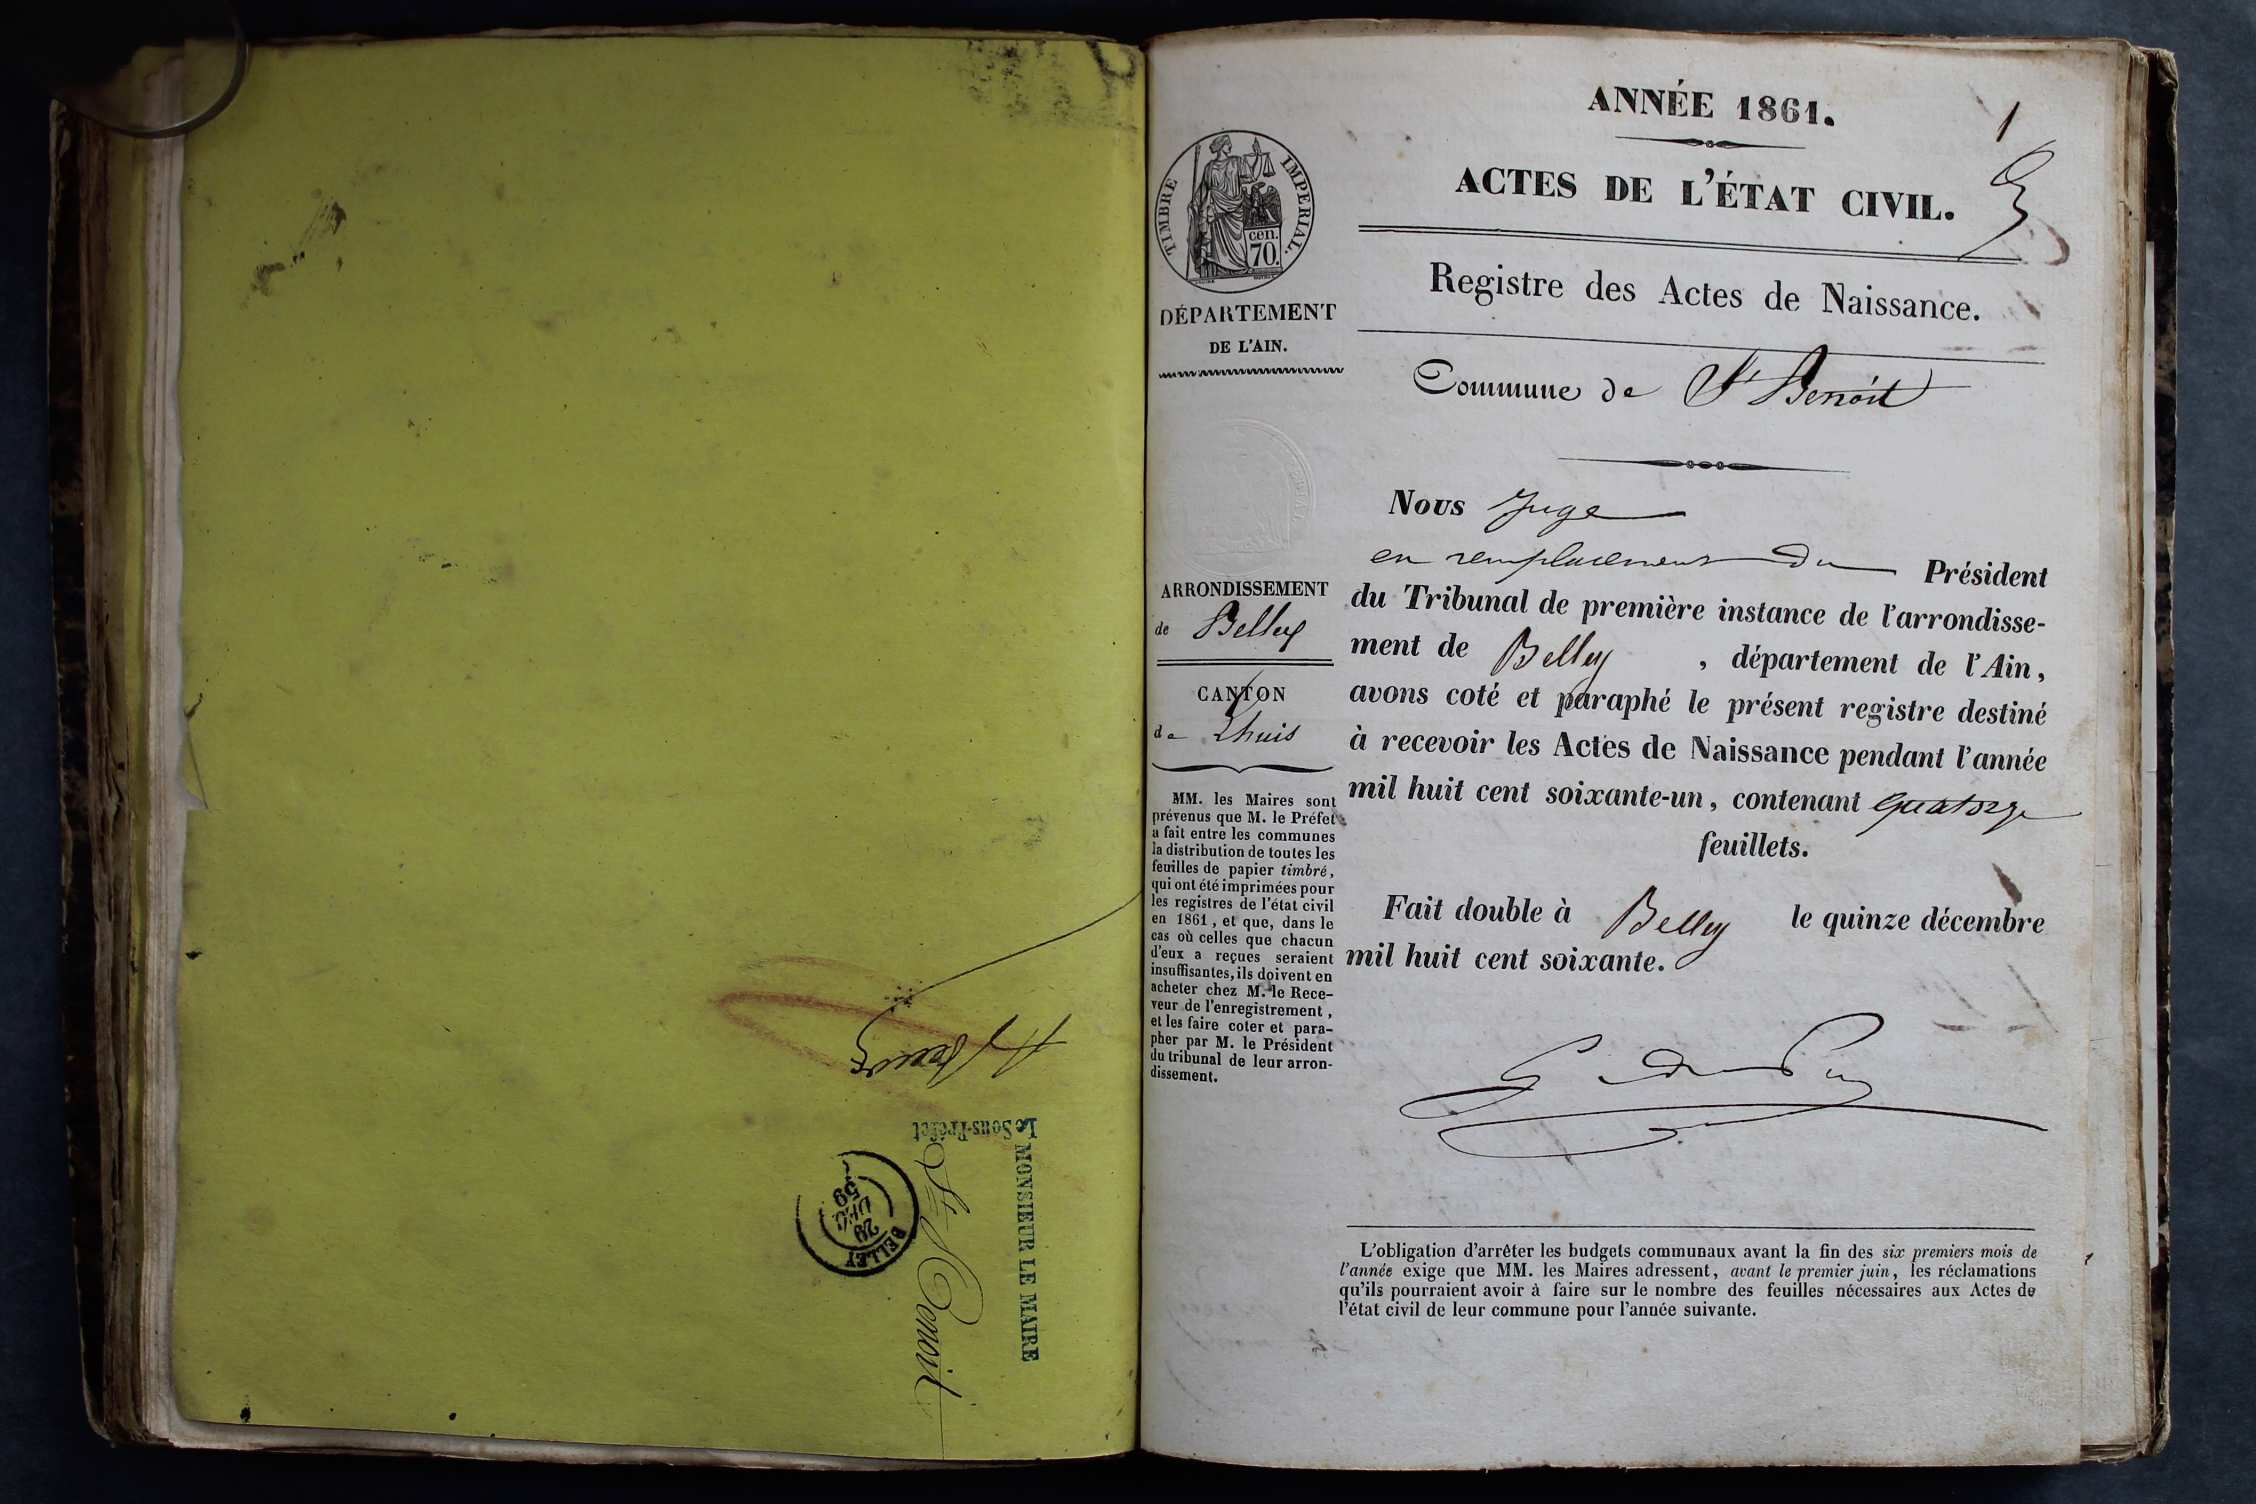 Le Sous-Préfet
MONSIEUR LE MAIRE
St Benoit
BELLEY
29
DÉC
59
ANNÉE 1861.
1
ACTES DE L'ÉTAT CIVIL.
Registre des Actes de Naissance.
Commune de St Benoit
TIMBRE IMPERIAL.
cen.
70.
DÉPARTEMENT
DE L'AIN.
ARRONDISSEMENT
de Belley
CANTON
de Lhuis
MM. les Maires sont
prévenus que M. le Préfet
a fait entre les communes
la distribution de toutes les
feuilles de papier timbré,
qui ont été imprimées pour
les registres de l'état civil
en 1861, et que, dans le
cas où celles que chacun
d'eux a reçues seraient
insuffisantes, ils doivent en
acheter chez M. le Rece-
veur de l'enregistrement,
et les faire coter et para-
pher par M. le Président
du tribunal de leur arron-
dissement.
Nous Juge
en remplacement du Président
du Tribunal de première instance de l'arrondisse-
ment de Belley, département de l'Ain,
avons coté et paraphé le présent registre destiné
à recevoir les Actes de Naissance pendant l'année
mil huit cent soixante-un, contenant quatorze
feuillets.
Fait double à Belley le quinze décembre
mil huit cent soixante.
L'obligation d'arrêter les budgets communaux avant la fin des six premiers mois de
l'année exige que MM. les Maires adressent, avant le premier juin, les réclamations
qu'ils pourraient avoir à faire sur le nombre des feuilles nécessaires aux Actes de
l'état civil de leur commune pour l'année suivante.